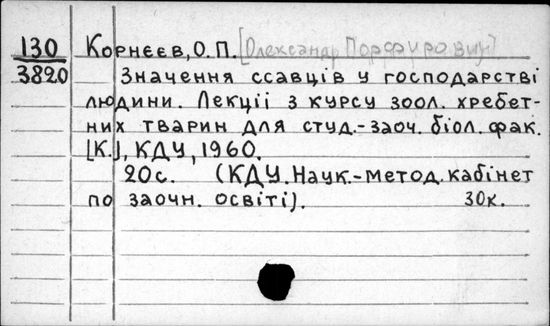 130 Корнєєв, О. П. [Олександр Порфирович]
3820 Значення ссавців у господарстві
людини. Лекції з курсу зоол. хребет-
них тварин для студ.-заоч. біол. фак.
[К.], КДУ, 1960.
20с. (КДУ. Наук.-метод. кабінет
по заочн. освіті). 30к.